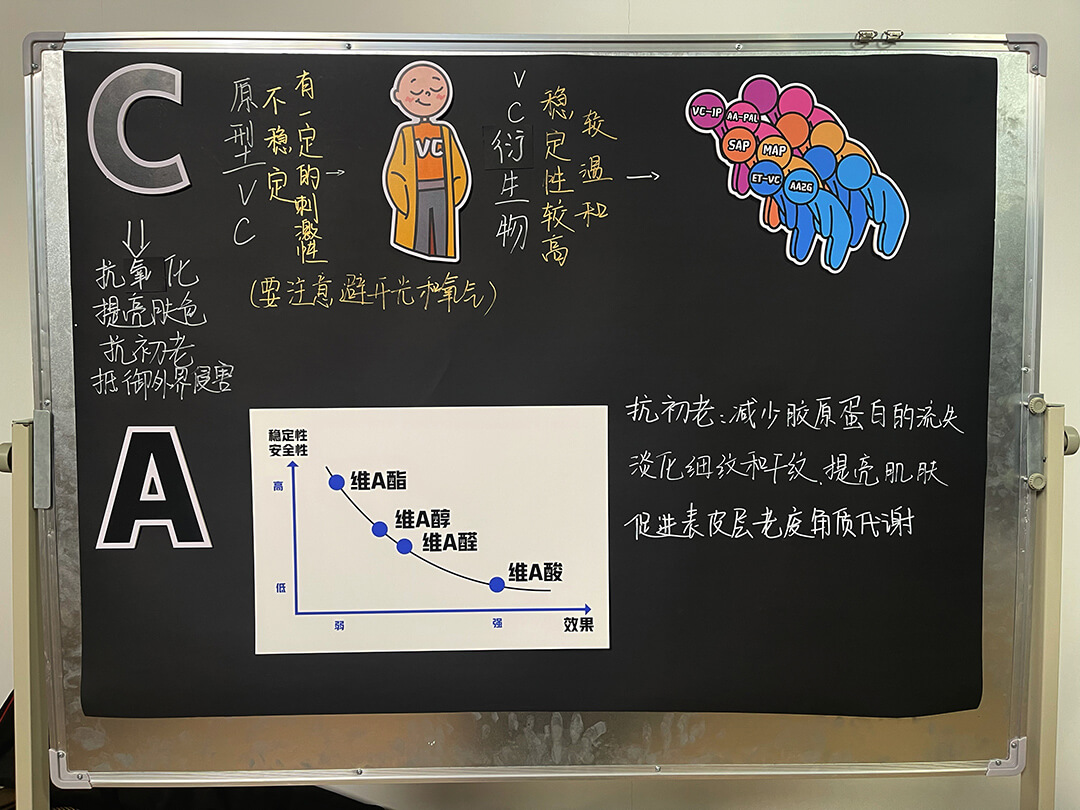 C
原型VC
不稳定
有一定的刺激性
→
VC
VC衍生物
稳定性较高
较温和
→
VC-IP
AA-PAL
SAP
MAP
ET-VC
AA2G
(要注意避开光和氧气)
抗氧化
提亮肤色
抗初老
抵御外界侵害
A
稳定性
安全性
高
低
维A酯
维A醇
维A醛
维A酸
弱
强
效果
抗初老:减少胶原蛋白的流失
淡化细纹和干纹.提亮肌肤
促进表皮层老废角质代谢